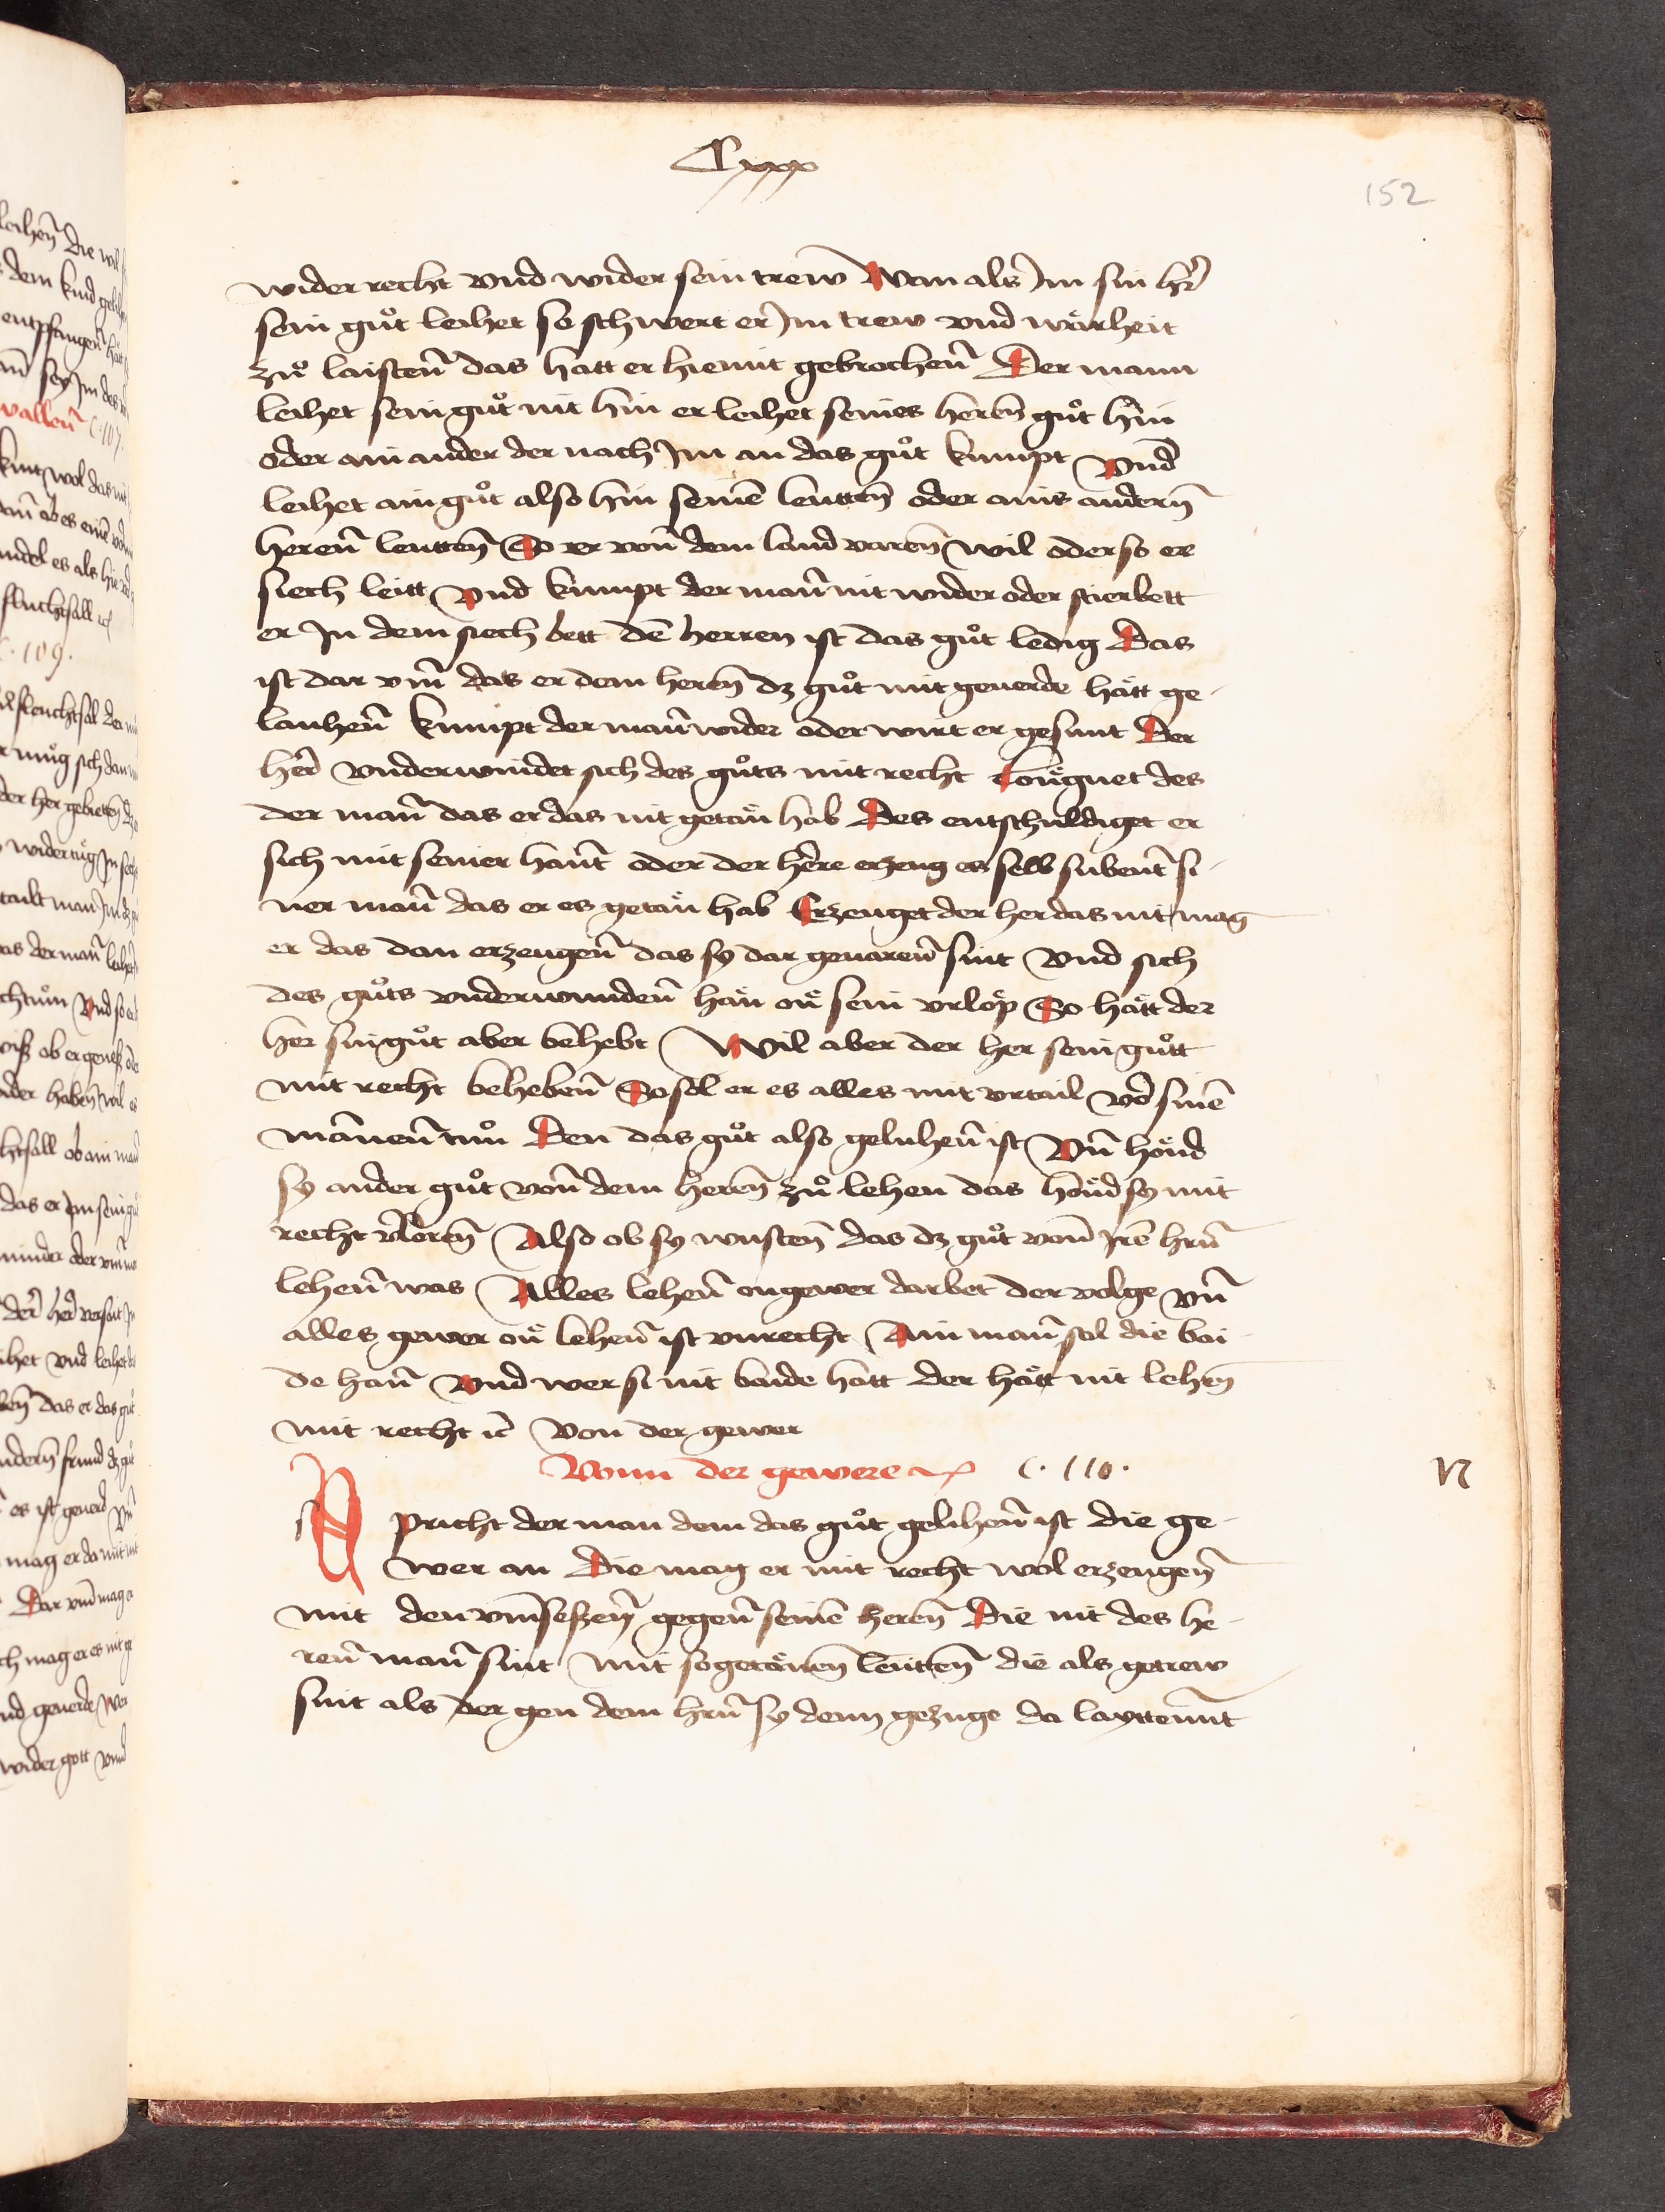 Cxxx
152
wider recht vnd wider sein trew Wan als Im sin hr̄
sein guͦt leihet so schwert er Im trew vnd waͤrheit
zuͦ laistenn̄ das hatt er hiemit gebrochenn̄ Der mann
leihet sein guͦt nit hin er leihet seines heren̄ guͦt hin
oder ain ander der nach Im an das guͦt kumpt Vnd
leihet ain guͦt also hin seinē leutten̄ oder ains andern̄
herenn̄ leutten̄ So er vonn̄ dem land varen̄ wil oder so er
siech leitt Vnd kumpt der mann̄ nit wider oder stierbett
er In dem siech bett dē herren ist das guͦt ledig Das
ist dar vm̄ das er dem heren̄ dz guͦt mit geuerde hätt ge-
lauhenn̄ kumpt der mann̄ wider oder wirt er gesunt Der
herr̄ vnderwindet sich des guͦts mit recht Loͤugnet des
der mann̄ das er das nit getaͤn hab Des entschuldiget er
sich mit seiner hann̄t oder der here erzeug es selb subent si-
ner mann̄ das er es getaͤn hab Erzeuget der her das nit mag
er das dan erzeugenn̄ das sy dar geuarenn̄ sint Vnd sich
des guͦts vnderwundenn̄ haͤn oͤn sein vrloͤp So hätt der
her sin guͦt aber behebt Wil aber der her sein guͦtt
mit recht behebenn̄ So sol er es alles mit vrtail vor̄ sinē
mānenn̄ tuͦn Den das guͦt also geluhenn̄ ist Vn̄ hoͤnd
sy ander guͦt vonn̄ dem heren̄ zuͦ lehen das hoͤnd sy mit
recht v̄loren̄ Also ob sy wusten̄ das dz guͦt vonn̄ Irē hrn̄
lehenn̄ was Alles lehenn̄ on gewer darbet der volge vn̄
alles gewer oͤn lehenn̄ ist vnrecht Ain mann̄ sol die bai-
de hann̄ Vnd wer si nit baide hatt der hätt nit lehen̄
mit recht ꝛc̄ Von der gewer
Vonn der gewere C. 110.
n
s Pricht der man dem das guͦt gelihenn̄ ist die ge-
wer an Die mag er mit recht wol erzeugen̄
mit den vmseßen̄ gegenn̄ seinē heren̄ Die nit des he-
renn̄ mann̄ sint mit so getaͤnen̄ leutten̄ die als getrew
sint als der gen dem hrn̄ sy denn gezuge da layttennt